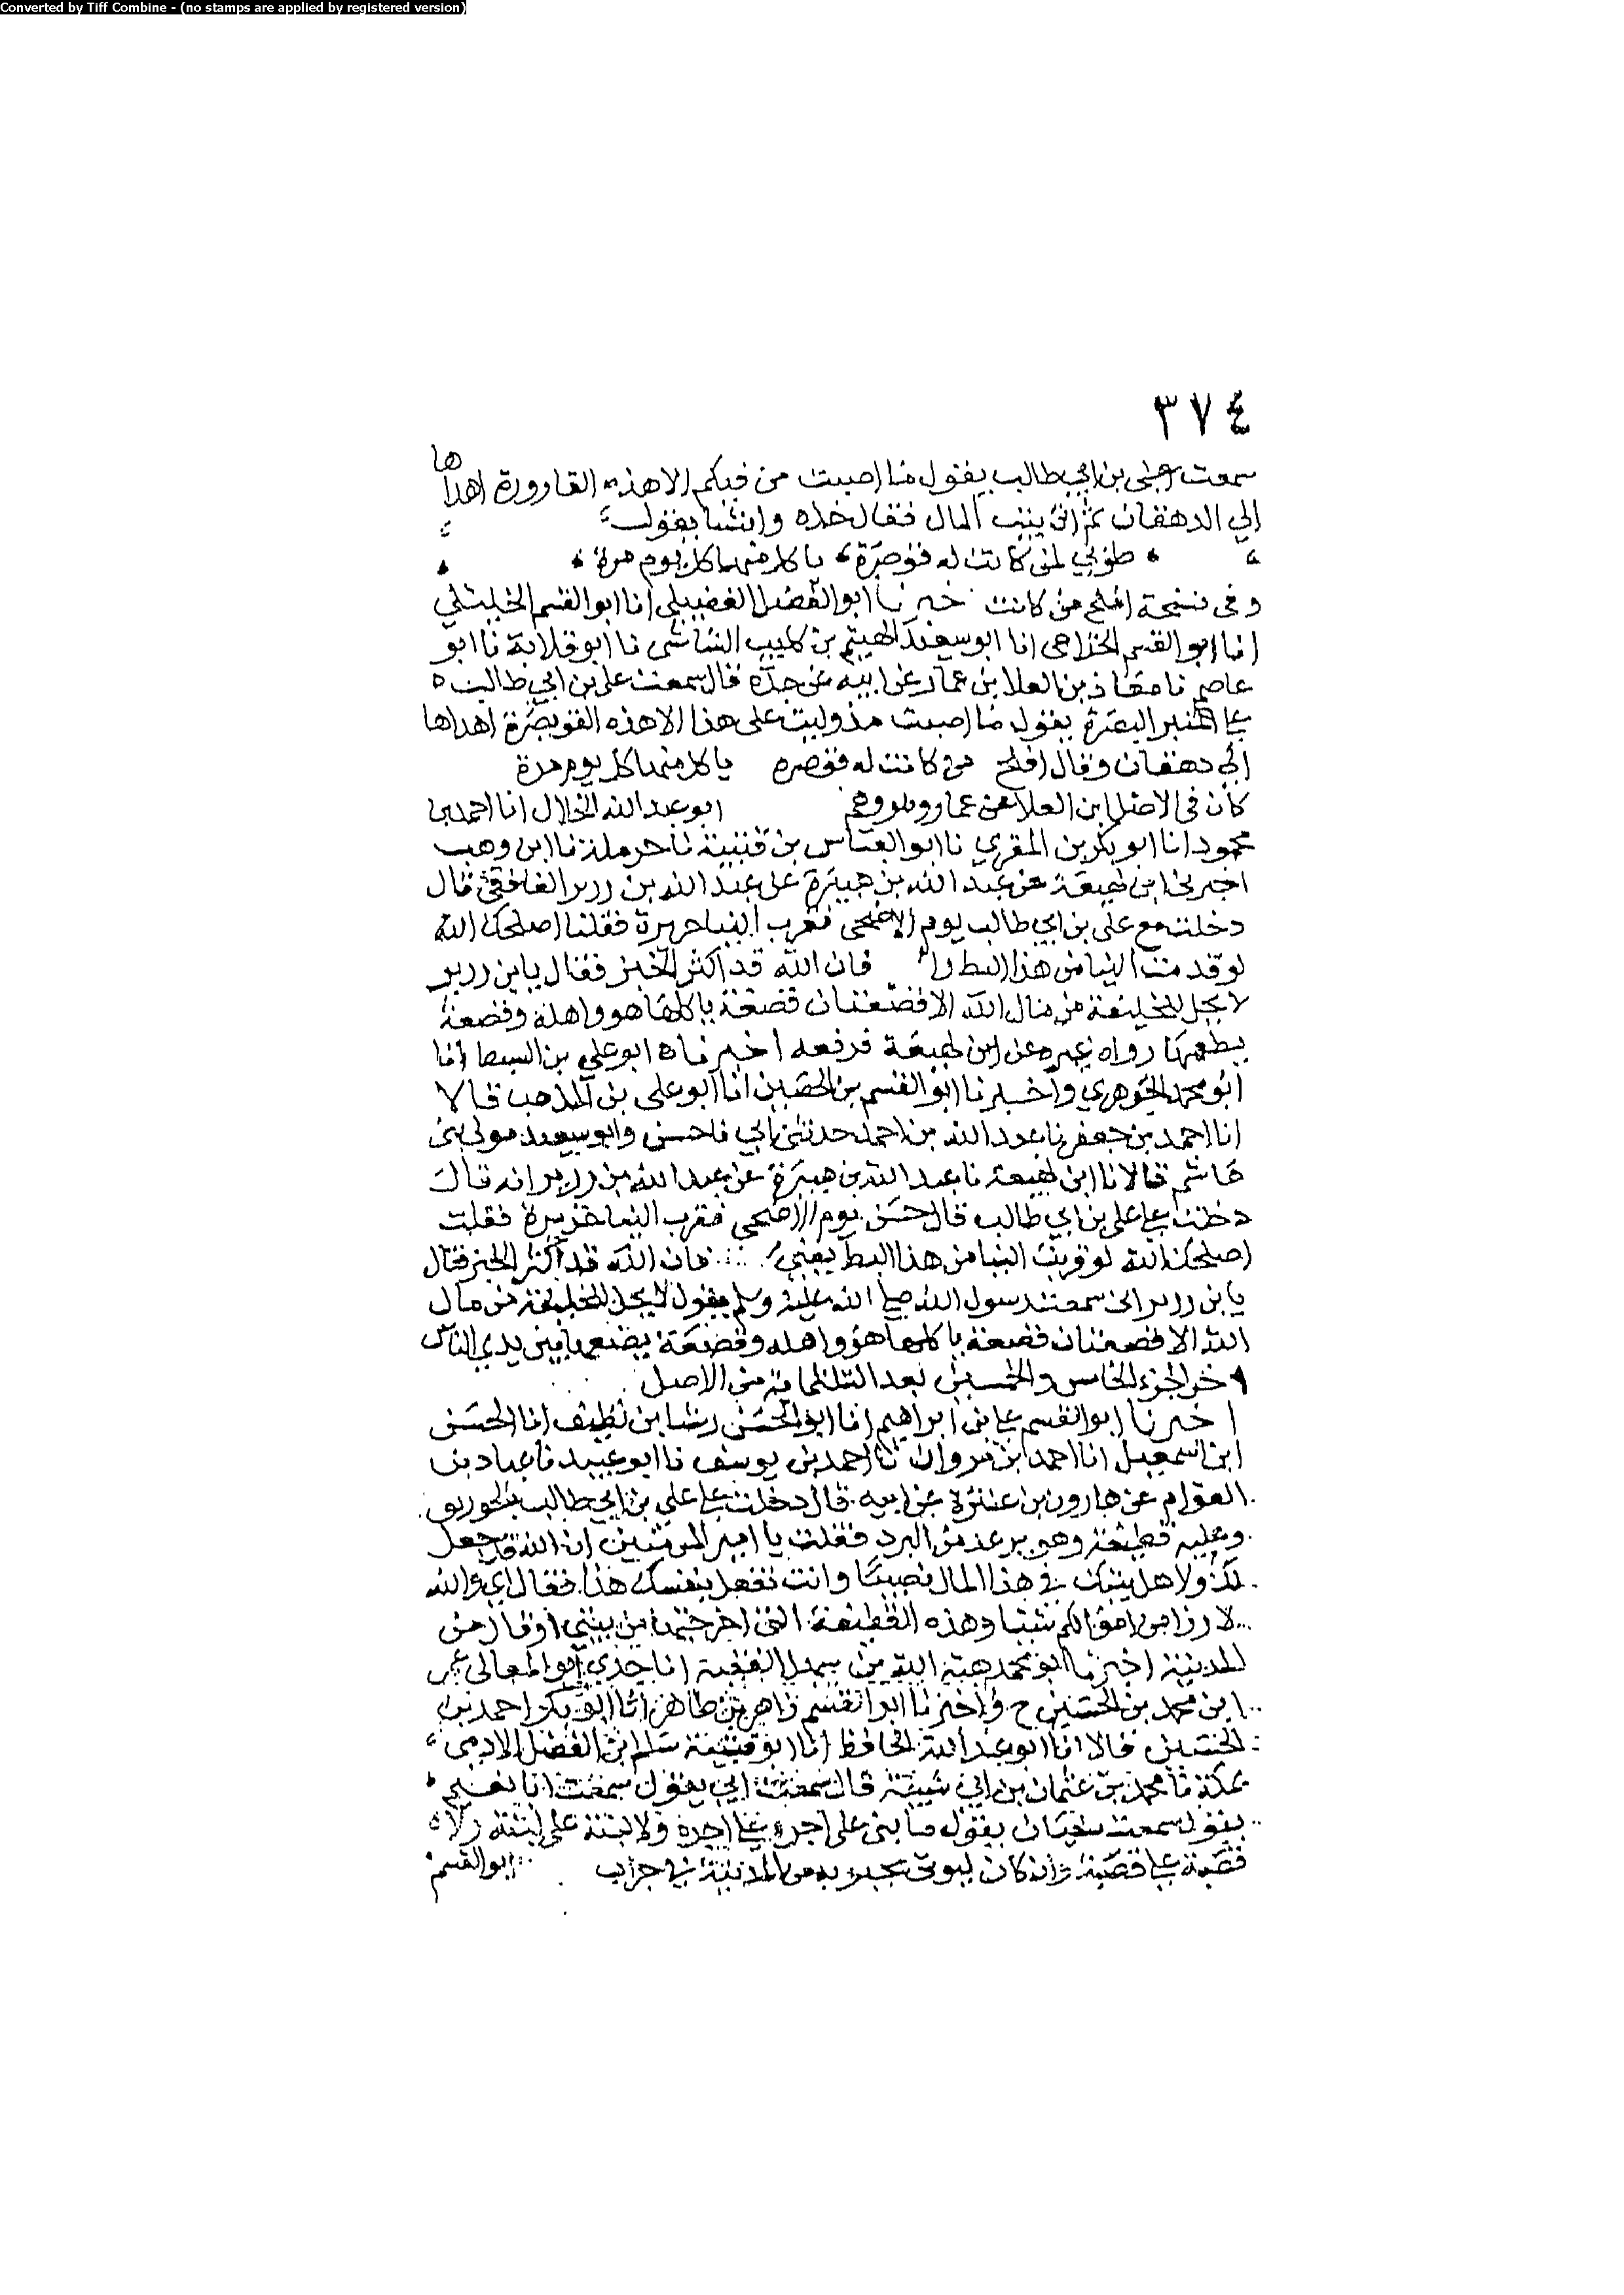 Converted by Tiff Combine - (no stamps are applied by registered version)
٣٧٤
سمعت علي بن ابي طالب يقول ما اصبت من فيكم الا هذه القارورة اهداها
الي الدهقان ثم اتى بيت المال فقال خذه وانشا يقول
طوبي لمن كانت له قوصرة ياكل منها كل يوم مرة
وفي نسخة افلح من كانت خبرنا ابو الفضل الفضيلي انا ابو القسم الخليلي
انا ابو القسم الخزاعي انا ابو سعيد الهيثم بن كليب الشاشي نا ابو قلابة نا ابو
عاصم نا معاذ بن العلا بن عمار عن ابيه عن جده قال سمعت علي بن ابي طالب
علي المنبر البصرة يقول ما اصبت مذ وليت على هذا الا هذه القويصرة اهداها
الي دهقان وقال افلح من كانت له قوصره ياكل منها كل يوم مرة
كان في الاصل ابن العلا عن عمار وهو وهم ابو عبد الله الخلال انا احمد بن
محمود انا ابو بكر بن المقري نا ابو العباس بن قتيبة نا حرملة نا ابن وهب
اخبرني ابن لهيعة عن عبد الله بن هبيرة عن عبد الله بن زرير الغافقي قال
دخلت مع علي بن ابي طالب يوم الاضحى فقرب الينا حريرة فقلنا اصلحك الله
لو قدمت الينا من هذا البط فان الله قد اكثر الخبز فقال يابن زرير
لا يحل للخليفة من مال الله الا قصعتان قصعة ياكلها هو واهله وقصعة
يطعمها رواه غيره عن ابن لهيعة فرفعه اخبرناه ابو علي بن السبط انا
ابو محمد الجوهري واخبرنا ابو القسم بن الحصين انا ابو علي بن المذهب قالا
انا احمد بن جعفر نا عبد الله بن احمد حدثني ابي نا حسن وابو سعيد مولى بني
هاشم قالا نا ابن لهيعة نا عبد الله بن هبيرة عن عبد الله بن زرير انه قال
دخلت علي علي بن ابي طالب قال حسن يوم الاضحى فقرب الينا خزيرة فقلت
اصلحك الله لو قربت الينا من هذا البط يعني فان الله قد اكثر الخبز فقال
يا بن زرير اني سمعت رسول الله صلي الله عليه وسلم يقول لا يحل للخليفة من مال
الله الا قصعتان قصعة ياكلها هو واهله وقصعة يضعها بين يدي الناس
اخر الجزء الخامس والخمسين بعد الثلثماية من الاصل
اخبرنا ابو القسم علي بن ابراهيم انا ابو الحسن رشا بن نظيف انا الحسن
ابن اسمعيل انا احمد بن مروان نا احمد بن يوسف نا ابو عبيد نا عباد بن
العوام عن هارون بن عنترة عن ابيه قال دخلت علي علي بن ابي طالب بالخورنق
وعليه قطيفة وهو يرعد من البرد فقلت يا امير المومنين ان الله قد جعل
لك ولاهل بيتك في هذا المال نصيبا وانت تفعل بنفسك هذا فقال اي والله
لا ارزا من اموالكم شيئا وهذه القطيفة التي اخرجتها من بيتي او قال من
المدينة اخبرنا ابو محمد هبة الله بن سهل الفقية انا جدي ابو المعالي عمر
ابن محمد بن الحسين ح واخبرنا ابو القسم زاهر بن طاهر انا ابو بكر احمد بن
الحسين قالا انا ابو عبد الله الحافظ انا ابو قتيبة سلم بن الفضل الادمي
بمكة نا محمد بن عثمان بن ابي شيبة قال سمعت ابي يقول سمعت ابا نعيم
يقول سمعت سفيان يقول ما بنى علي اجرة علي اجرة ولا لبنة علي لبنة ولا
قصبة علي قصبة وان كان ليوتى بحبوبه من المدينة في جراب ابو القسم